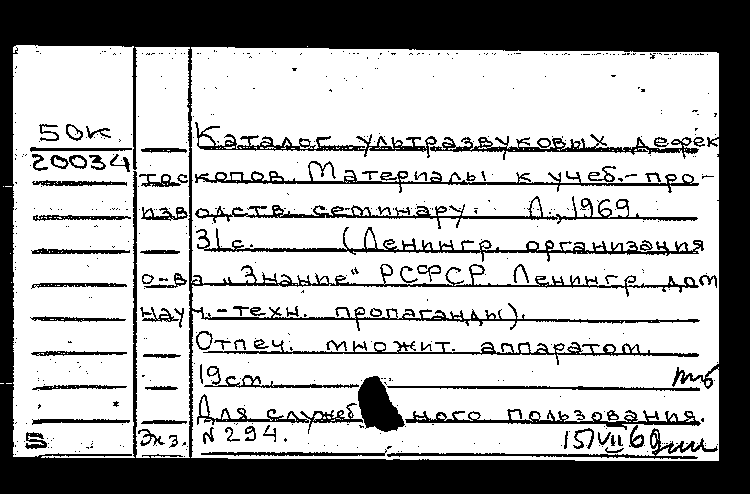 50к Каталог ультразвуковых дефек
20034
тоскопов. Материалы к учеб.-про-
изводств. семинару. Л., 1969.
31с. (Ленингр. организация
о-ва "Знание" РСФСР. Ленингр. дом
науч.-техн. пропаганды).
Отпеч. множит. аппаратом.
19см.
Для служебного пользования.
Экз. №294. 15/VII 69